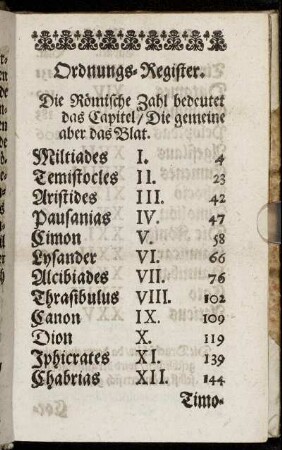 Ordnungs-Register.
Die Römische Zahl bedeutet
das Capitel/Die gemeine
aber das Blat.
Miltiades I. 4
Temistocles II. 23
Aristides III. 42
Pausanias IV. 47
Cimon V. 58
Lysander VI. 66
Alcibiades VII. 76
Thrasibulus VIII. 102
Canon IX. 109
Dion X. 119
Iphicrates XI. 139
Chabrias XII. 144
Timo-